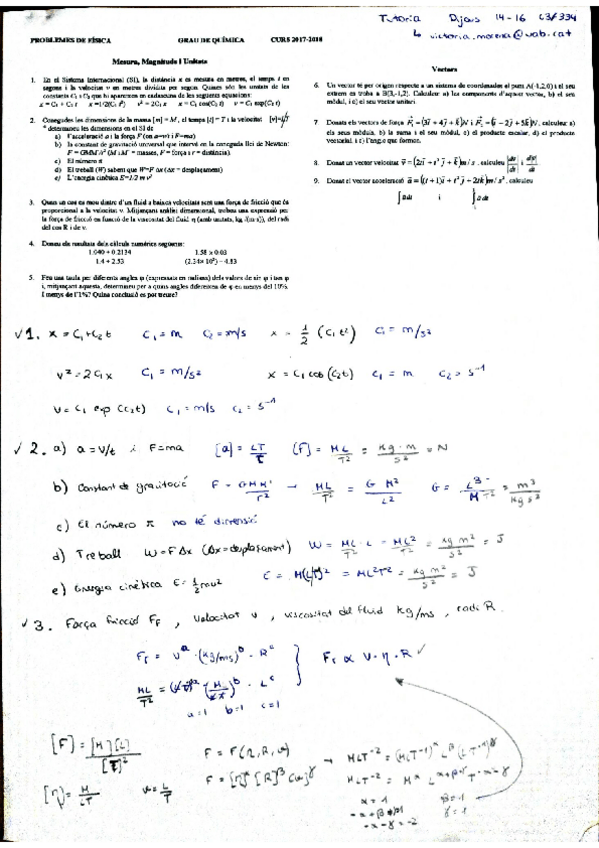 Tutoria Dijous 14-16 C3/334
↳ victoria.moreno@uab.cat
PROBLEMES DE FÍSICA GRAU DE QUÍMICA CURS 2017-2018
Mesura, Magnituds i Unitats
1. En el Sistema Internacional (SI), la distància x es mesura en metres, el temps t en
segons i la velocitat v en metres dividit per segon. Quines són les unitats de les
constants C₁ i C₂ que hi apareixen en cadascuna de les següents equacions:
x = C₁ + C₂ t x = 1/2(C₁ t²) v² = 2C₁ x x = C₁ cos(C₂ t) v = C₁ exp(C₂ t)
2. Conegudes les dimensions de la massa [m] = M, el temps [t] = T i la velocitat
determineu les dimensions en el SI de
a) l'acceleració a i la força F (on a=v/t i F=ma)
b) la constant de gravitació universal que intervé en la coneguda llei de Newton:
F = GMM'/r² (M i M' = masses, F = força i r = distància).
c) El número π
d) El treball (W) sabent que W=F Δx (Δx = desplaçament)
e) L'energia cinètica E=1/2 m v²
3. Quan un cos es mou dintre d'un fluid a baixes velocitats sent una força de fricció que és
proporcional a la velocitat v. Mitjançant anàlisi dimensional, trobeu una expressió per
la força de fricció en funció de la viscositat del fluid η (amb unitats, kg /(m·s)), del radi
del cos R i de v.
4. Doneu els resultats dels càlculs numèrics següents:
1.040 + 0.2134 1.58 x 0.03
1.4 + 2.53 (2.34x 10²) – 4.83
5. Feu una taula per diferents angles φ (expressats en radians) dels valors de sin φ i tan φ
i, mitjançant aquesta, determineu per a quins angles difereixen de φ en menys del 10%.
I menys de l'1%? Quina conclusió es pot treure?
Vectors
6. Un vector té per origen respecte a un sistema de coordenades el punt A(-1,2,0) i el seu
extrem es troba a B(3,-1,2). Calculeu: a) les components d'aquest vector, b) el seu
mòdul, i c) el seu vector unitari.
els seus mòduls, b) la suma i el seu mòdul, c) el producte escalar, d) el producte
vectorial i e) l'angle que formen.
✓1. x = C₁+C₂t C₁ = m C₂ = m/s x = 1/2 (C₁t²) C₁ = m/s²
v² = 2C₁x C₁ = m/s² x = C₁ cos(C₂t) C₁ = m C₂ = s⁻¹
v = C₁ exp(C₂t) C₁ = m/s C₂ = s⁻¹
✓ 2. a) a = v/t i F=ma [a] = LT/T [F] = ML/T² = kg·m/s² = N
b) Constant de gravitació F = GMM'/r² → ML/T² = G M²/L² G = L³/MT² = m³/kg s²
c) El número π no té dimensió
d) Treball W = FΔx (Δx = desplaçament) W = ML/T²·L = ML²/T² = kg m²/s² = J
e) Energia cinètica E = 1/2mv² E = M(L/T)² = ML²T² = kg m²/s² = J
✓ 3. Força fricció F_f, velocitat v, viscositat del fluid kg/ms, radi R.
F_f = v^a · (kg/ms)^b · R^c F_f ∝ v·η·R ✓
a=1 b=1 c=1
[F] = [M][L]/[T]² F = F(η, R, v) → MLT⁻² = (ML⁻¹T⁻¹)^α L^β (LT⁻¹)^γ
[η] = M/LT v = L/T F = [η]^α [R]^β [v]^γ
α = 1 β = 1
γ = 1
-α-γ = -2